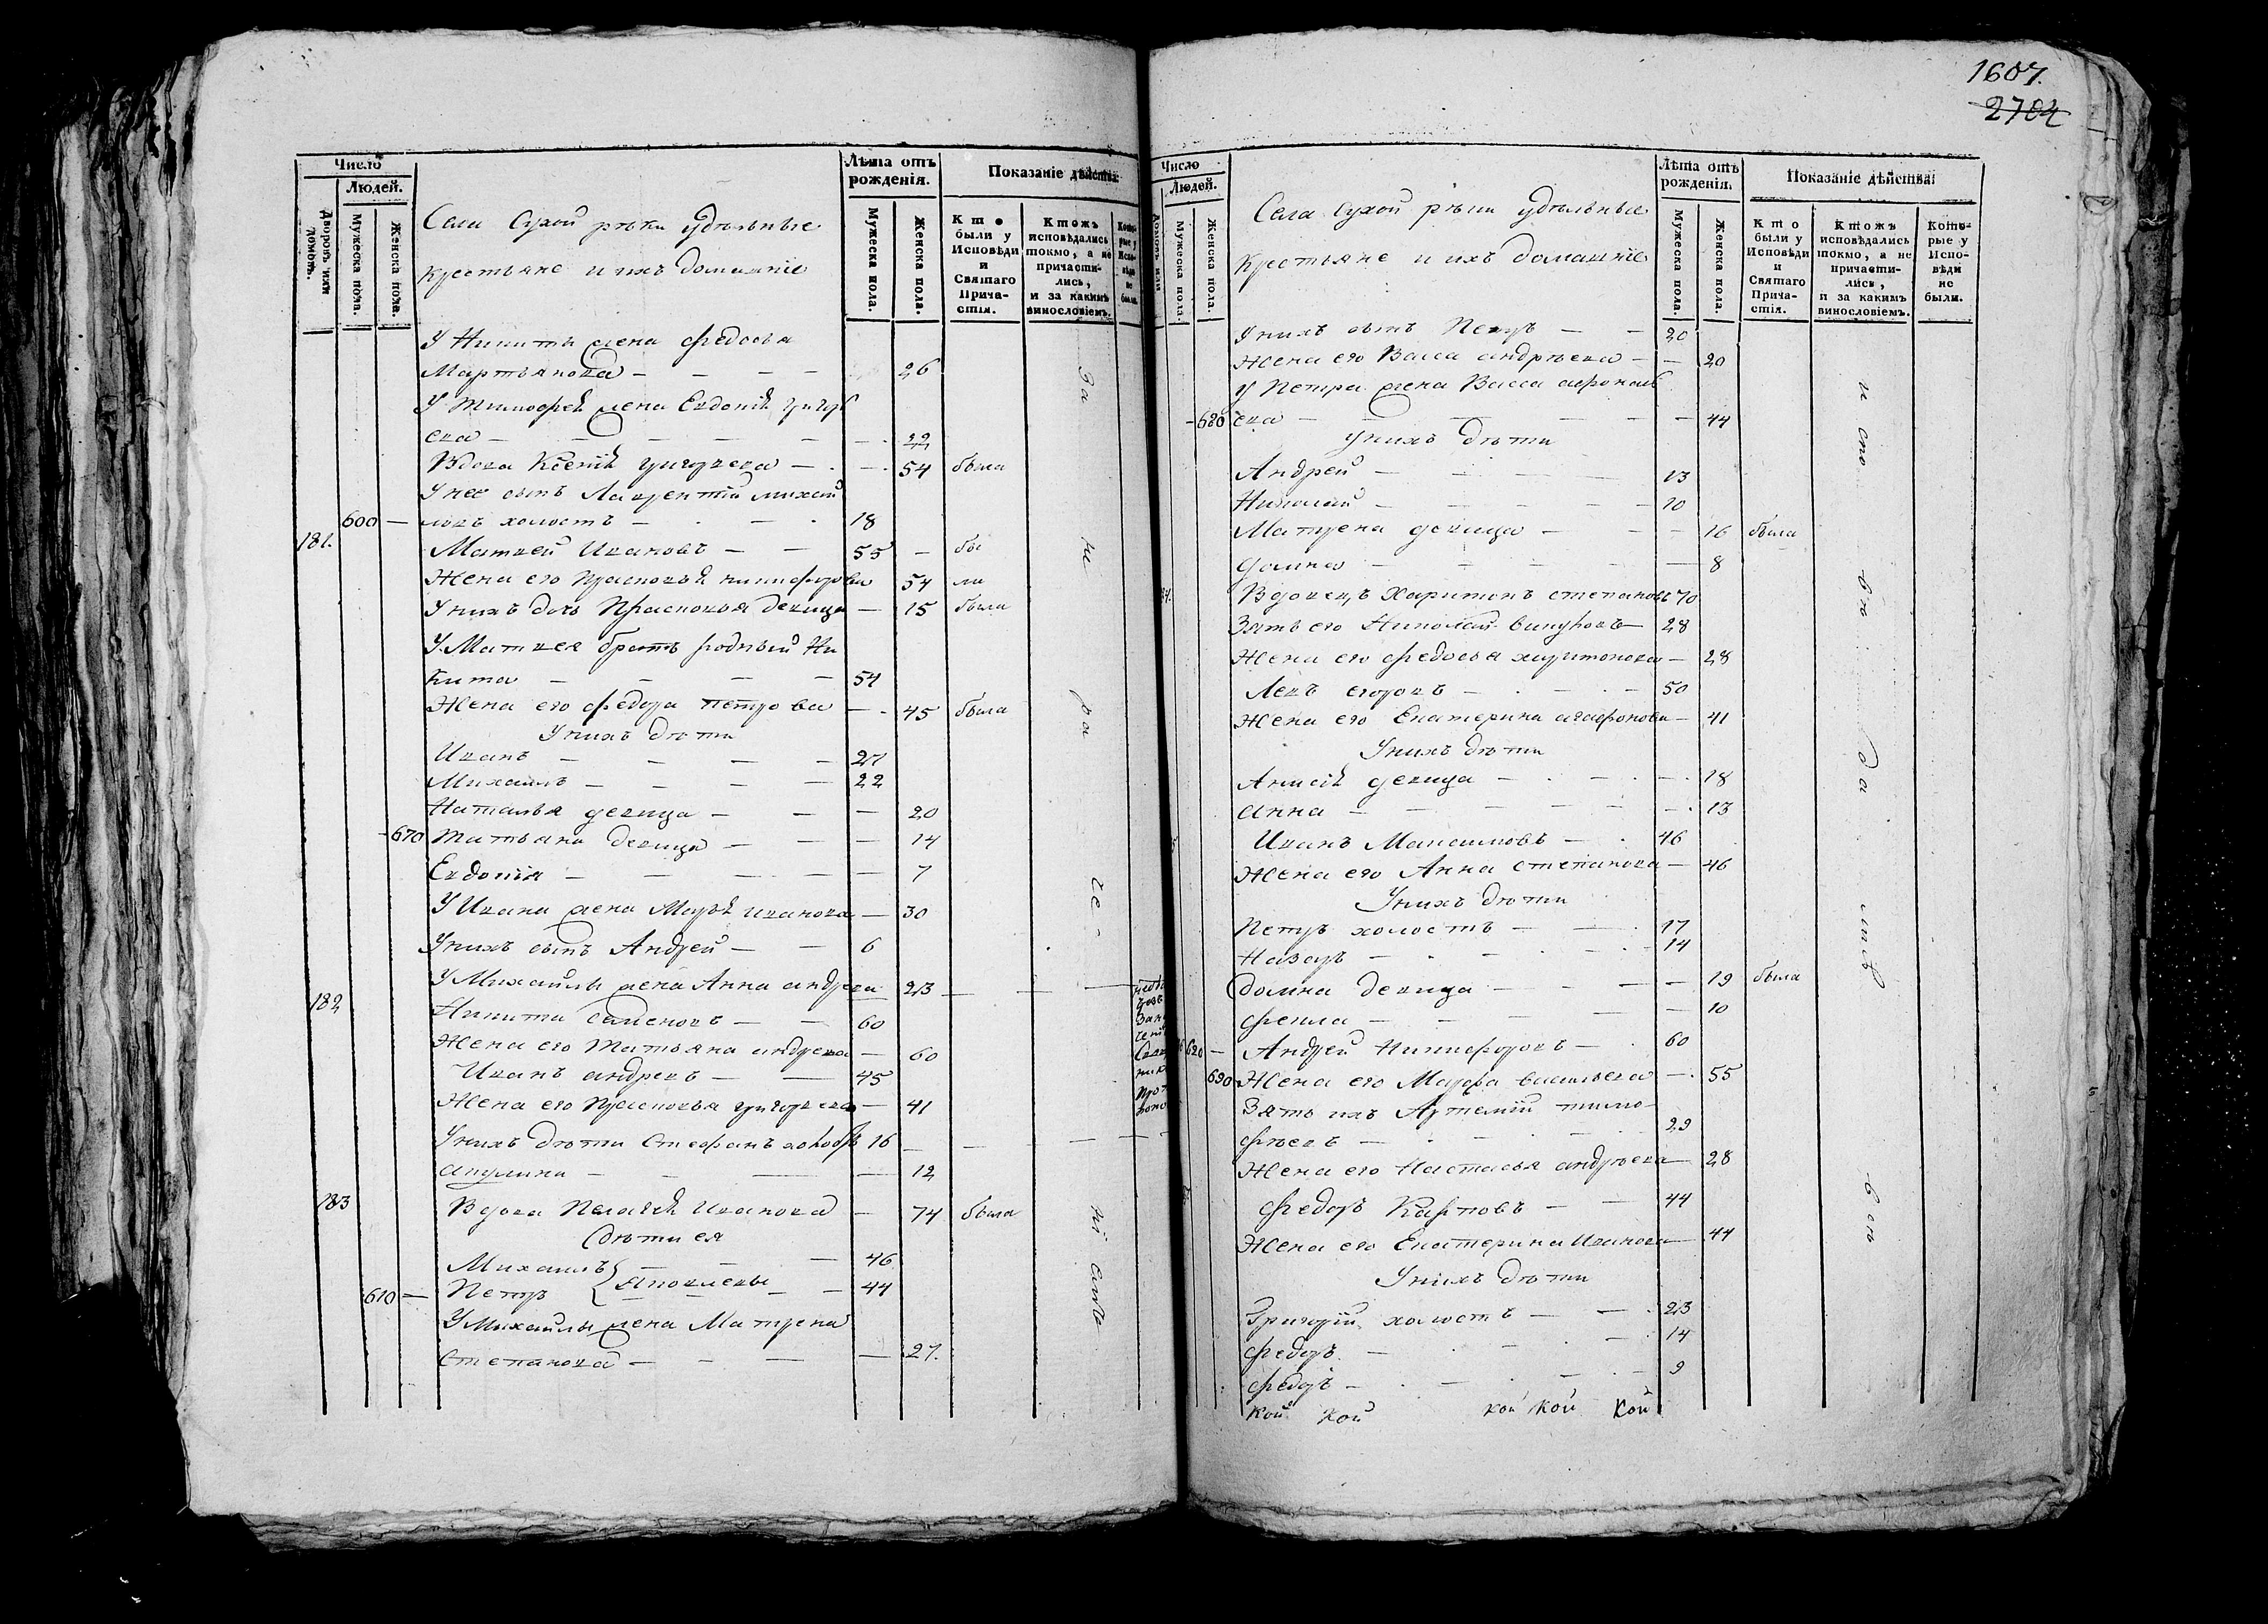 1607.
2704
Число
Людей.
Дворовъ или домовъ.
Мужеска пола.
Женска пола.
Села Сухой рѣки удѣльные
крестьяне и ихъ домашніе
Лѣта отъ рожденія.
Мужеска пола.
Женска пола.
Показаніе дѣйства
Кто были у Исповѣди и Святаго Причастія.
Ктожъ исповѣдались токмо, а не причастились, и за какимъ винословіемъ.
Которые у Исповѣди не были.
У Никиты жена Федосья
Мартьянова — 26
У Тимофея жена Евдокія григорь
ева — 22
Вдова Ксенія григорьева — 54 была
У нее сынъ Лаврентій михай
600 — ловъ холостъ — 18
181. Матвей Ивановъ — 55 — бы
Жена его Прасковья никифорова 54 ли
У нихъ дочь Прасковья девица — 15 была
У Матвея братъ родный Ни
кита — 54
Жена его Федора петрова — 45 была
У нихъ дѣти
Иванъ — 27
Михаилъ — 22
Наталья девица — 20
670 Татьяна девица — 14
Евдокія — 7
У Ивана жена Марья иванова — 30
У нихъ сынъ Андрей — 6
У Михаилы жена Анна андреева 23 —
182 Никита Семеновъ — 60
Жена его Татьяна андреева — 60
Иванъ андреевъ — 45
Жена его Прасковья григорьева — 41
У нихъ дѣти Стефанъ холостъ 16
акулина — 12
183 Вдова Пелагея Иванова — 74 была
Дѣти ея
Михаилъ — 46
610 — Петръ { Яковлевы — 44
У Михаилы жена Матрена
Степанова — 27.
За
не
ра
че-
ні
емъ
Число
Людей.
Мужеска пола.
Женска пола.
Села Сухой рѣки удѣльные
крестьяне и ихъ домашніе
Лѣта отъ рожденія.
Мужеска пола.
Женска пола.
Показаніе дѣйства:
Кто были у Исповѣди и Святаго Причастія.
Ктожъ исповѣдались токмо, а не причастились, и за какимъ винословіемъ.
Которые у Исповѣди не были.
У нихъ сынъ Петръ — 20
Жена его Васса андрѣева — 20
У Петра жена Васса афонась
680 ева — 44
У нихъ дѣти
Андрей — 13
Николай — 10
Матрена девица — 16 была
Домна — 8
Вдовецъ Харитонъ степановъ 70
Зять его Николай викуловъ — 28
Жена его Федосья харитонова — 28
Левъ егоровъ — 50
Жена его Екатерина агафонова — 41
У нихъ дѣти
Анисія девица — 18
анна — 13
Иванъ Максимовъ — 46
Жена его Анна степанова — 46
У нихъ дѣти
Петръ холостъ — 17
Назаръ — 14
Домна девица — 19 была
Фекла — 10
620 — Андрей Никифоровъ — 60
690 Жена его Марфа васильева — 55
Зять ихъ Артемій тимо-
фѣевъ — 29
Жена его Настасья андрѣева — 28
Федоръ Карповъ — 44
Жена его Екатерина Иванова — 44
У нихъ дѣти
Григорій холостъ — 23
Федоръ — 14
Федоръ — 9
кой кой кой кой кой